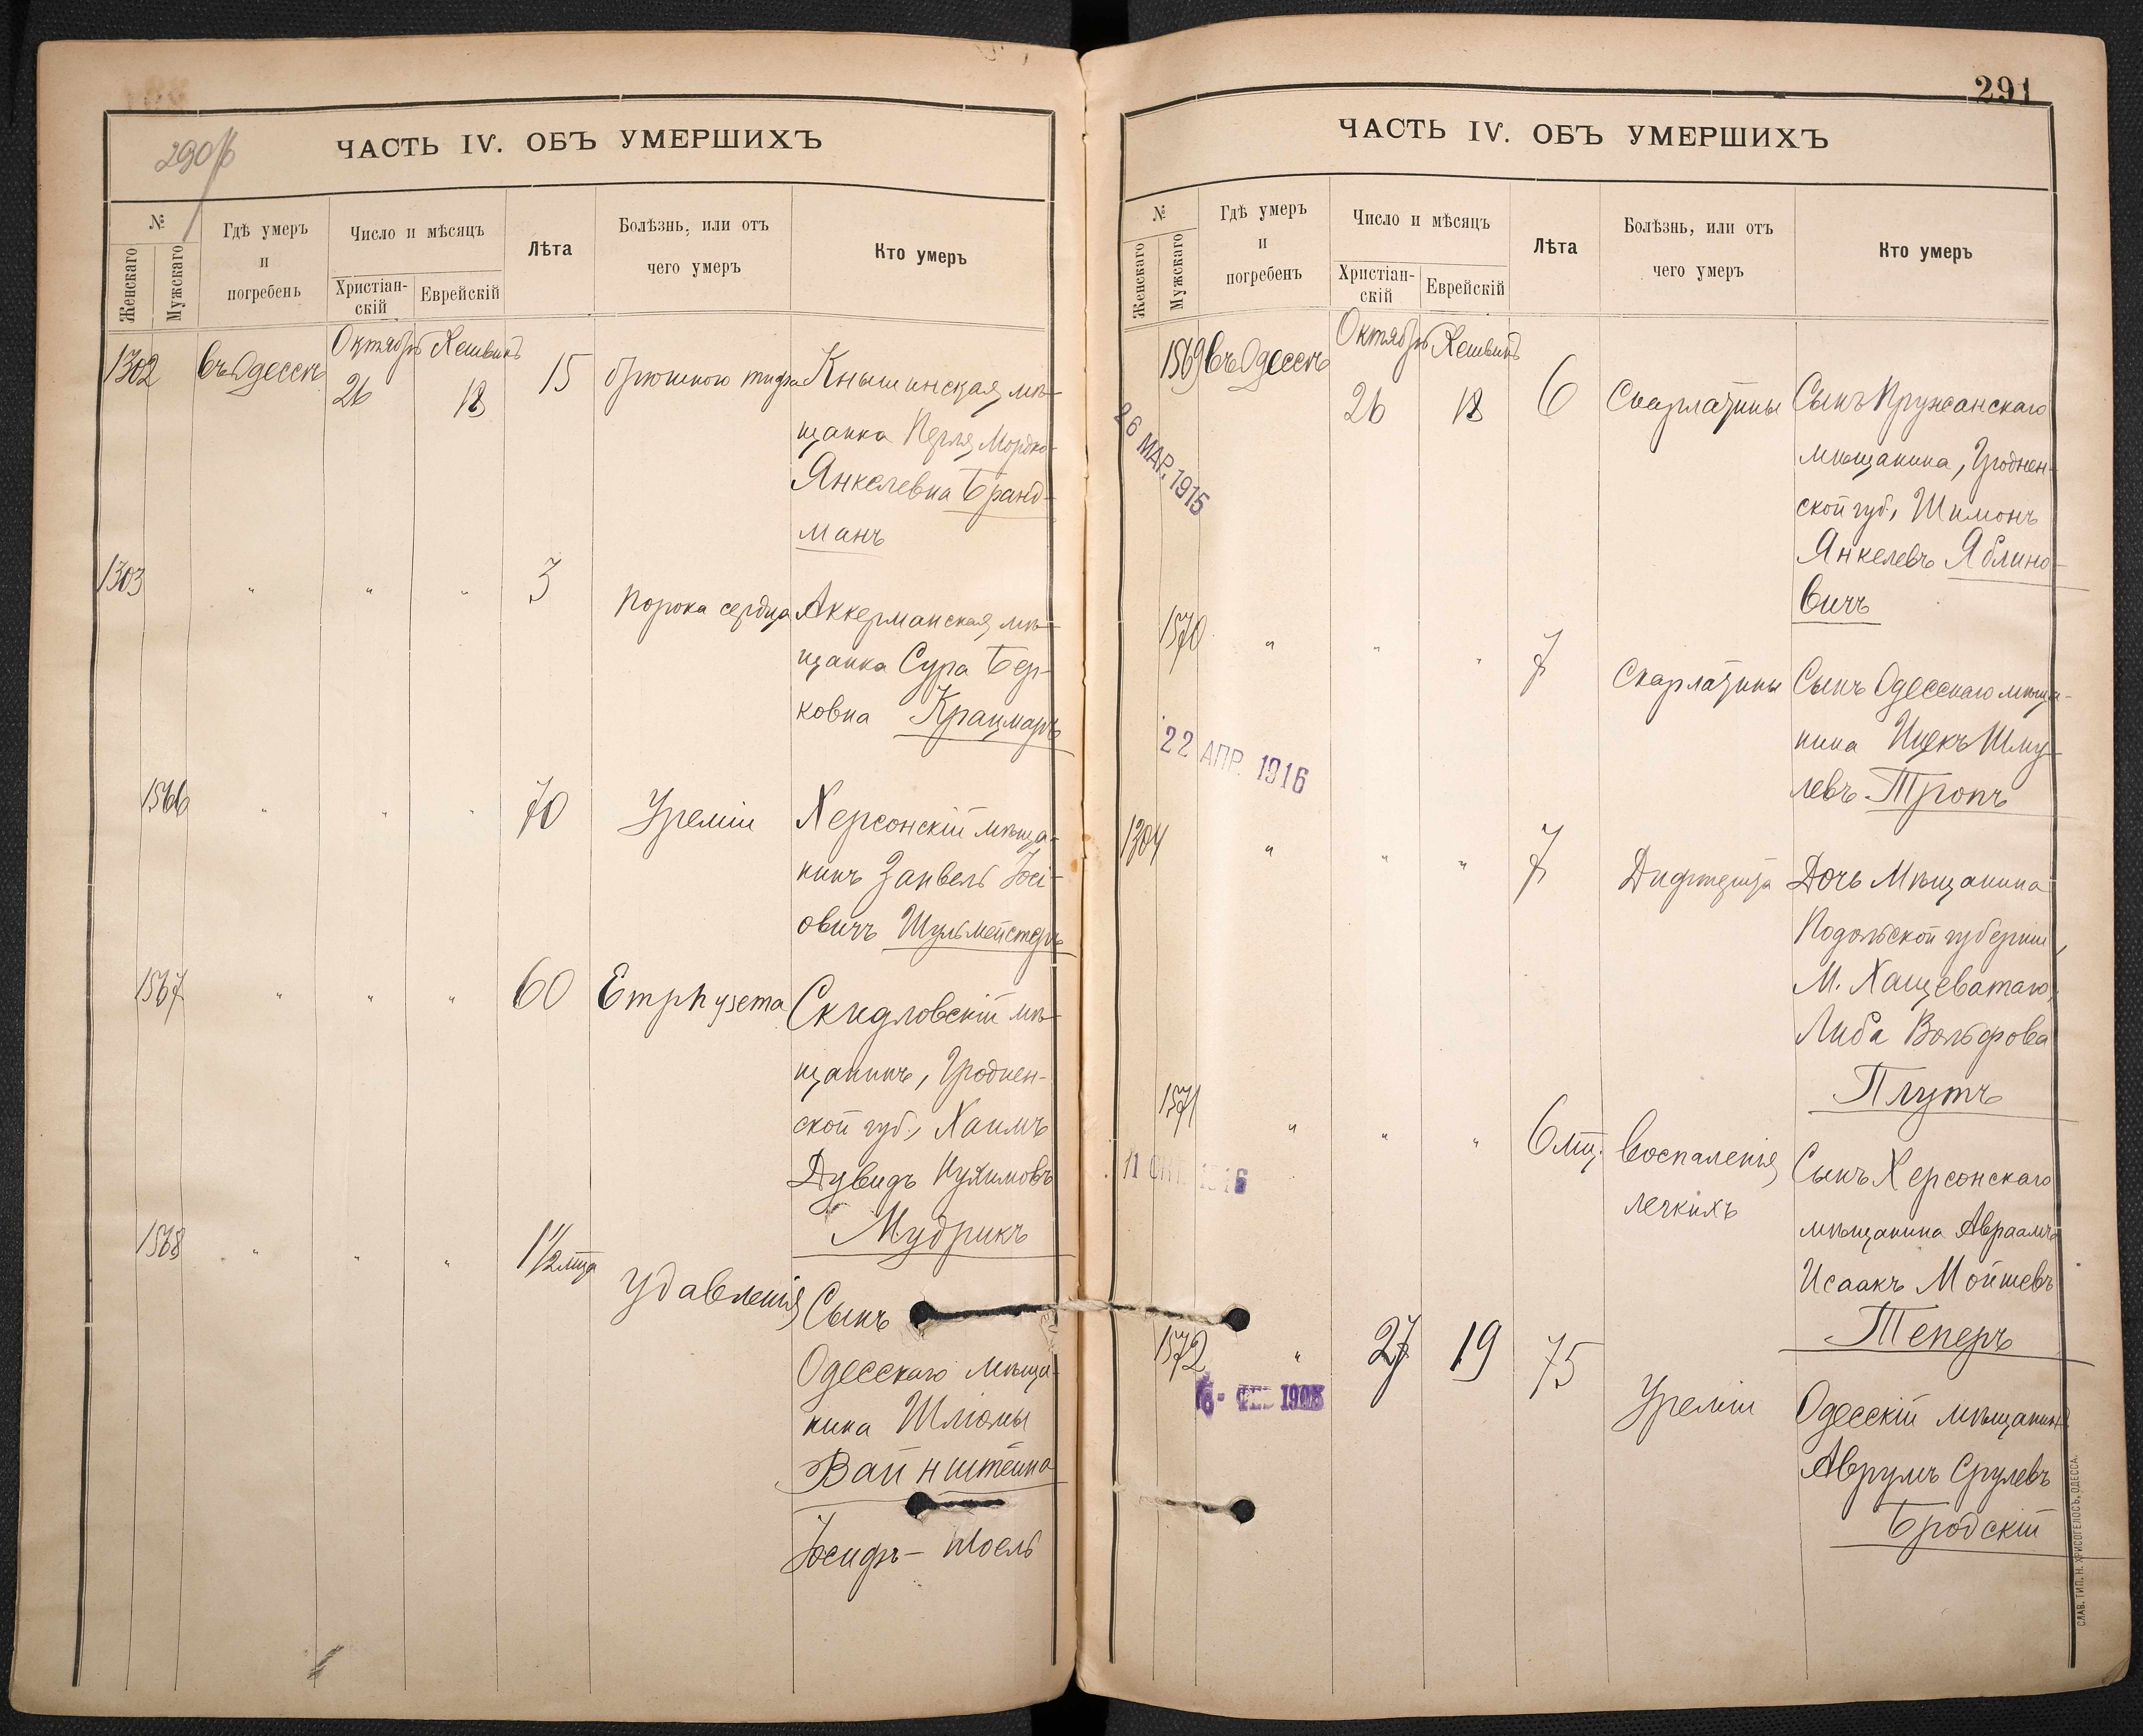 290/б
ЧАСТЬ IV. ОБЪ УМЕРШИХЪ
№
Женскаго
Мужскаго
Гдѣ умеръ
и
погребень
Число и мѣсяцъ
Христіан-
скій
Еврейскій
Лѣта
Болѣзнь, или отъ
чего умеръ
Кто умеръ
Октябрь Хешвинъ
1302 въ Одессѣ 26 18 15 брюшного тифа Кнышинская мѣ-
щанка Перля Мордко-
Янкелевна Бранд-
манъ
1303 " " " 3 порока сердца Аккерманская мѣ-
щанка Сура Бер-
ковна Крацмаръ
1566 " " " 70 Уреміи Херсонскій мѣща-
нинъ Занвель Іосі-
овичъ Шульмейстеръ
1567 " " " 60 Emphysema Скидловскій мѣ-
щанинъ, Гроднен-
ской губ., Хаимъ
Дувидъ Нухимовъ
Мудрикъ
1568 " " " 1½ мца удавленія Сынъ
Одесскаго мѣща-
нина Шліомы
Вайнштейна
Іосифъ-Шоель
291
ЧАСТЬ IV. ОБЪ УМЕРШИХЪ
№
Женскаго
Мужскаго
Гдѣ умеръ
и
погребенъ
Число и мѣсяцъ
Христіан-
скій
Еврейскій
Лѣта
Болѣзнь, или отъ
чего умеръ
Кто умеръ
Октябрь Хешвинъ
1569 въ Одессѣ 26 18 6 Скарлатины Сынъ Пружанскаго
мѣщанина, Гроднен-
ской губ., Шимонъ
Янкелевъ Яблино-
вичъ
26 МАР. 1915
1570 " " " 7 Скарлатины Сынъ Одесскаго мѣща-
нина Ицекъ Шму-
левъ Тропъ
22 АПР. 1916
1304 " " " 7 Дифтерита Дочь Мѣщанина
Подольской губерніи,
М. Хащеватаго,
Либа Вольфова
Плутъ
1571 " " " 6 мц. Воспаленія Сынъ Херсонскаго
легкихъ
мѣщанина Авраамъ
Исаакъ Мойшевъ
Теперъ
11 ОКТ. 1916
1572 " 27 19 75 Уреміи Одесскій мѣщанинъ
Аврумъ Срулевъ
Бродскій
СЛАВ. ТИП. Н. ХРИСОГЕЛОСЪ, ОДЕССА.